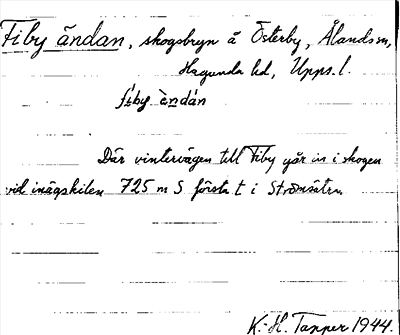 Fiby ändan, skogsbryn å Österby, Ålands sn,
Hagunda hd, Upps. l.
fíby ǟndán
Där vintervägen till Fiby går in i skogen
vid inägskilen 725 m S första t i Strömsätra
K.-H. Tapper 1944.